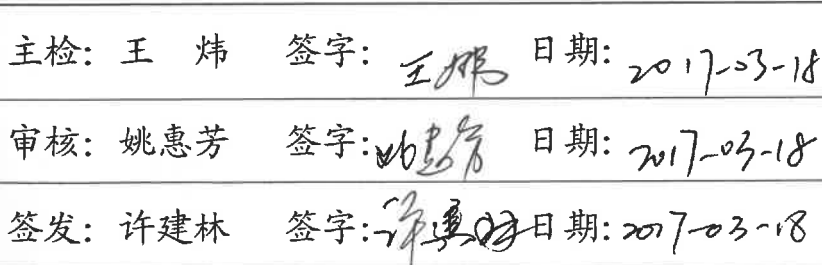 主检：王 炜 签字：王炜 日期：2017-03-18
审核：姚惠芳 签字：姚惠芳 日期：2017-03-18
签发：许建林 签字：许建林 日期：2017-03-18